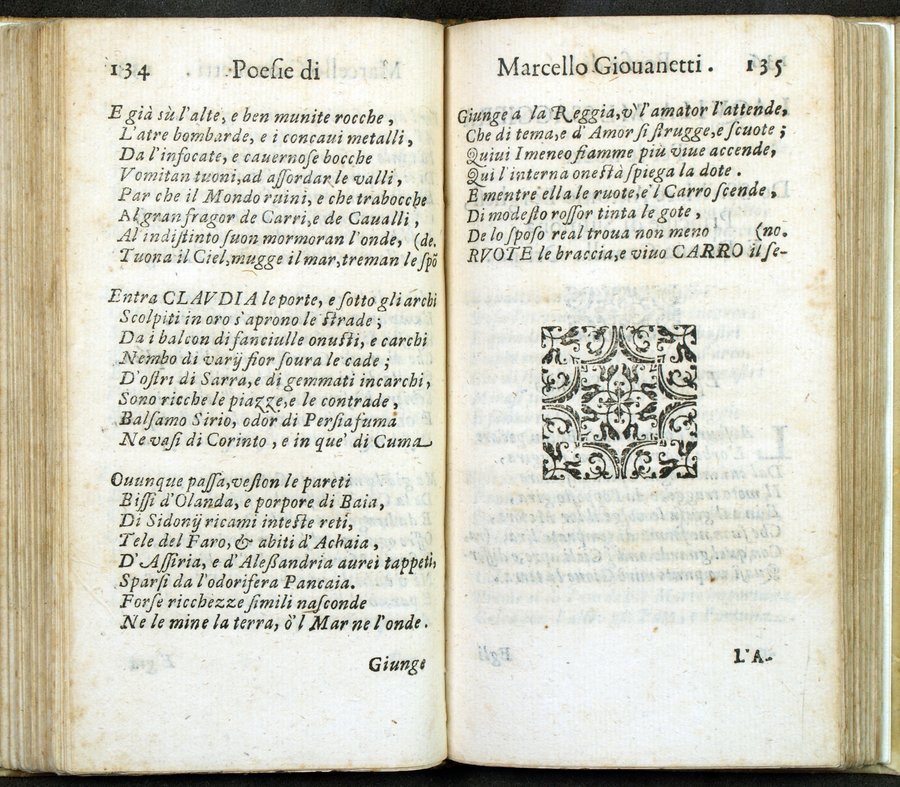 134 Poesie di
E già sù l'alte, e ben munite rocche,
L'atre bombarde, e i concaui metalli,
Da l'infocate, e cauernose bocche
Vomitan tuoni, ad assordar le valli,
Par che il Mondo ruini, e che trabocche
Al gran fragor de Carri, e de Caualli,
Al'indistinto suon mormoran l'onde, (de.
Tuona il Ciel, mugge il mar, treman le spō
Entra CLAVDIA le porte, e sotto gli archi
Scolpiti in oro s'aprono le strade;
Da i balcon di fanciulle onusti, e carchi
Nembo di varij fior soura le cade;
D'ostri di Sarra, e di gemmati incarchi,
Sono ricche le piazze, e le contrade,
Balsamo Sirio, odor di Persia fuma
Ne vasi di Corinto, e in que' di Cuma
Ouunque passa, veston le pareti
Bissi d'Olanda, e porpore di Baia,
Di Sidonij ricami inteste reti,
Tele del Faro, & abiti d'Achaia,
D'Assiria, e d'Alessandria aurei tappeti,
Sparsi da l'odorifera Pancaia.
Forse ricchezze simili nasconde
Ne le mine la terra, ò'l Mar ne l'onde.
Giunge
Marcello Giouanetti. 135
Giunge a la Reggia, v' l'amator l'attende,
Che di tema, e d'Amor si strugge, e scuote;
Quiui Imeneo fiamme più viue accende,
Qui l'interna onestà spiega la dote.
E mentre ella le ruote, e'l Carro scende,
Di modesto rossor tinta le gote,
De lo sposo real troua non meno (no.
RVOTE le braccia, e viuo CARRO il se-
L'A-